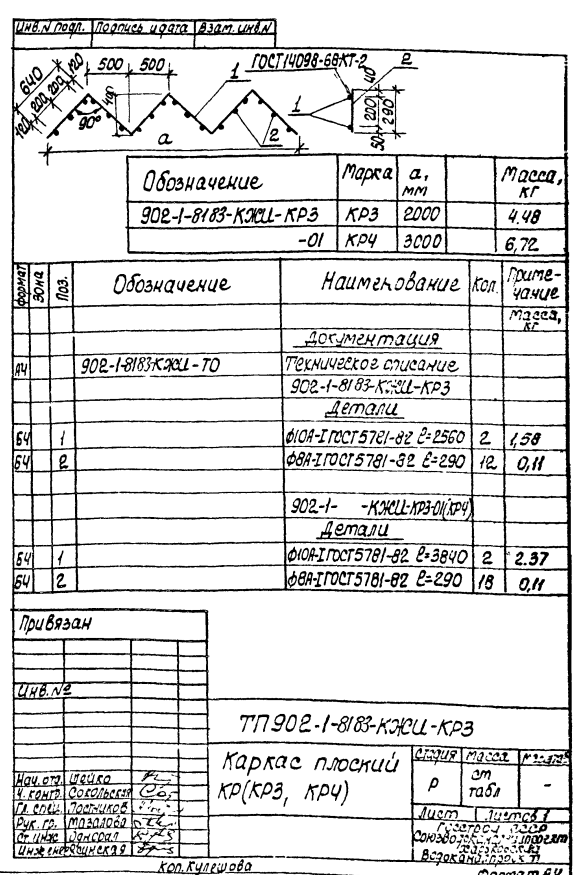 Инв.N подл. Подпись и дата Взам. инв.N
640
120 200 200 120
500 500
400
90°
а
1
2
ГОСТ 14098-68 КТ-2
2
1
40
200
50
290
Обозначение Марка а, мм Масса, кг
902-1-8183-КЖИ-КР3 КР3 2000 4,48
-01 КР4 3000 6,72
Формат Зона Поз. Обозначение Наименование Кол. Приме-
чание
Масса,
кг
Документация
А4 902-1-8183-КЖИ-ТО Техническое описание
902-1-8183-КЖИ-КР3
Детали
БЧ 1 ф10А-I ГОСТ 5781-82 ℓ=2560 2 1,58
БЧ 2 ф8А-I ГОСТ 5781-82 ℓ=290 12 0,11
902-1- -КЖИ-КР3-01(КР4)
Детали
БЧ 1 ф10А-I ГОСТ 5781-82 ℓ=3840 2 2.37
БЧ 2 ф8А-I ГОСТ 5781-82 ℓ=290 18 0,11
Привязан
Инв. №
ТП 902-1-8183-КЖИ-КР3
Каркас плоский
КР(КР3, КР4)
Стадия Масса Масштаб
Р см
табл -
Лист Листов 1
Госстрой СССР
Нач. отд. Шейко
Н. контр. Сокольская
Гл. спец. Постников
Рук. гр. Мазалова
Ст. инж.
Инженер
Коп. Кулешова
Формат А4